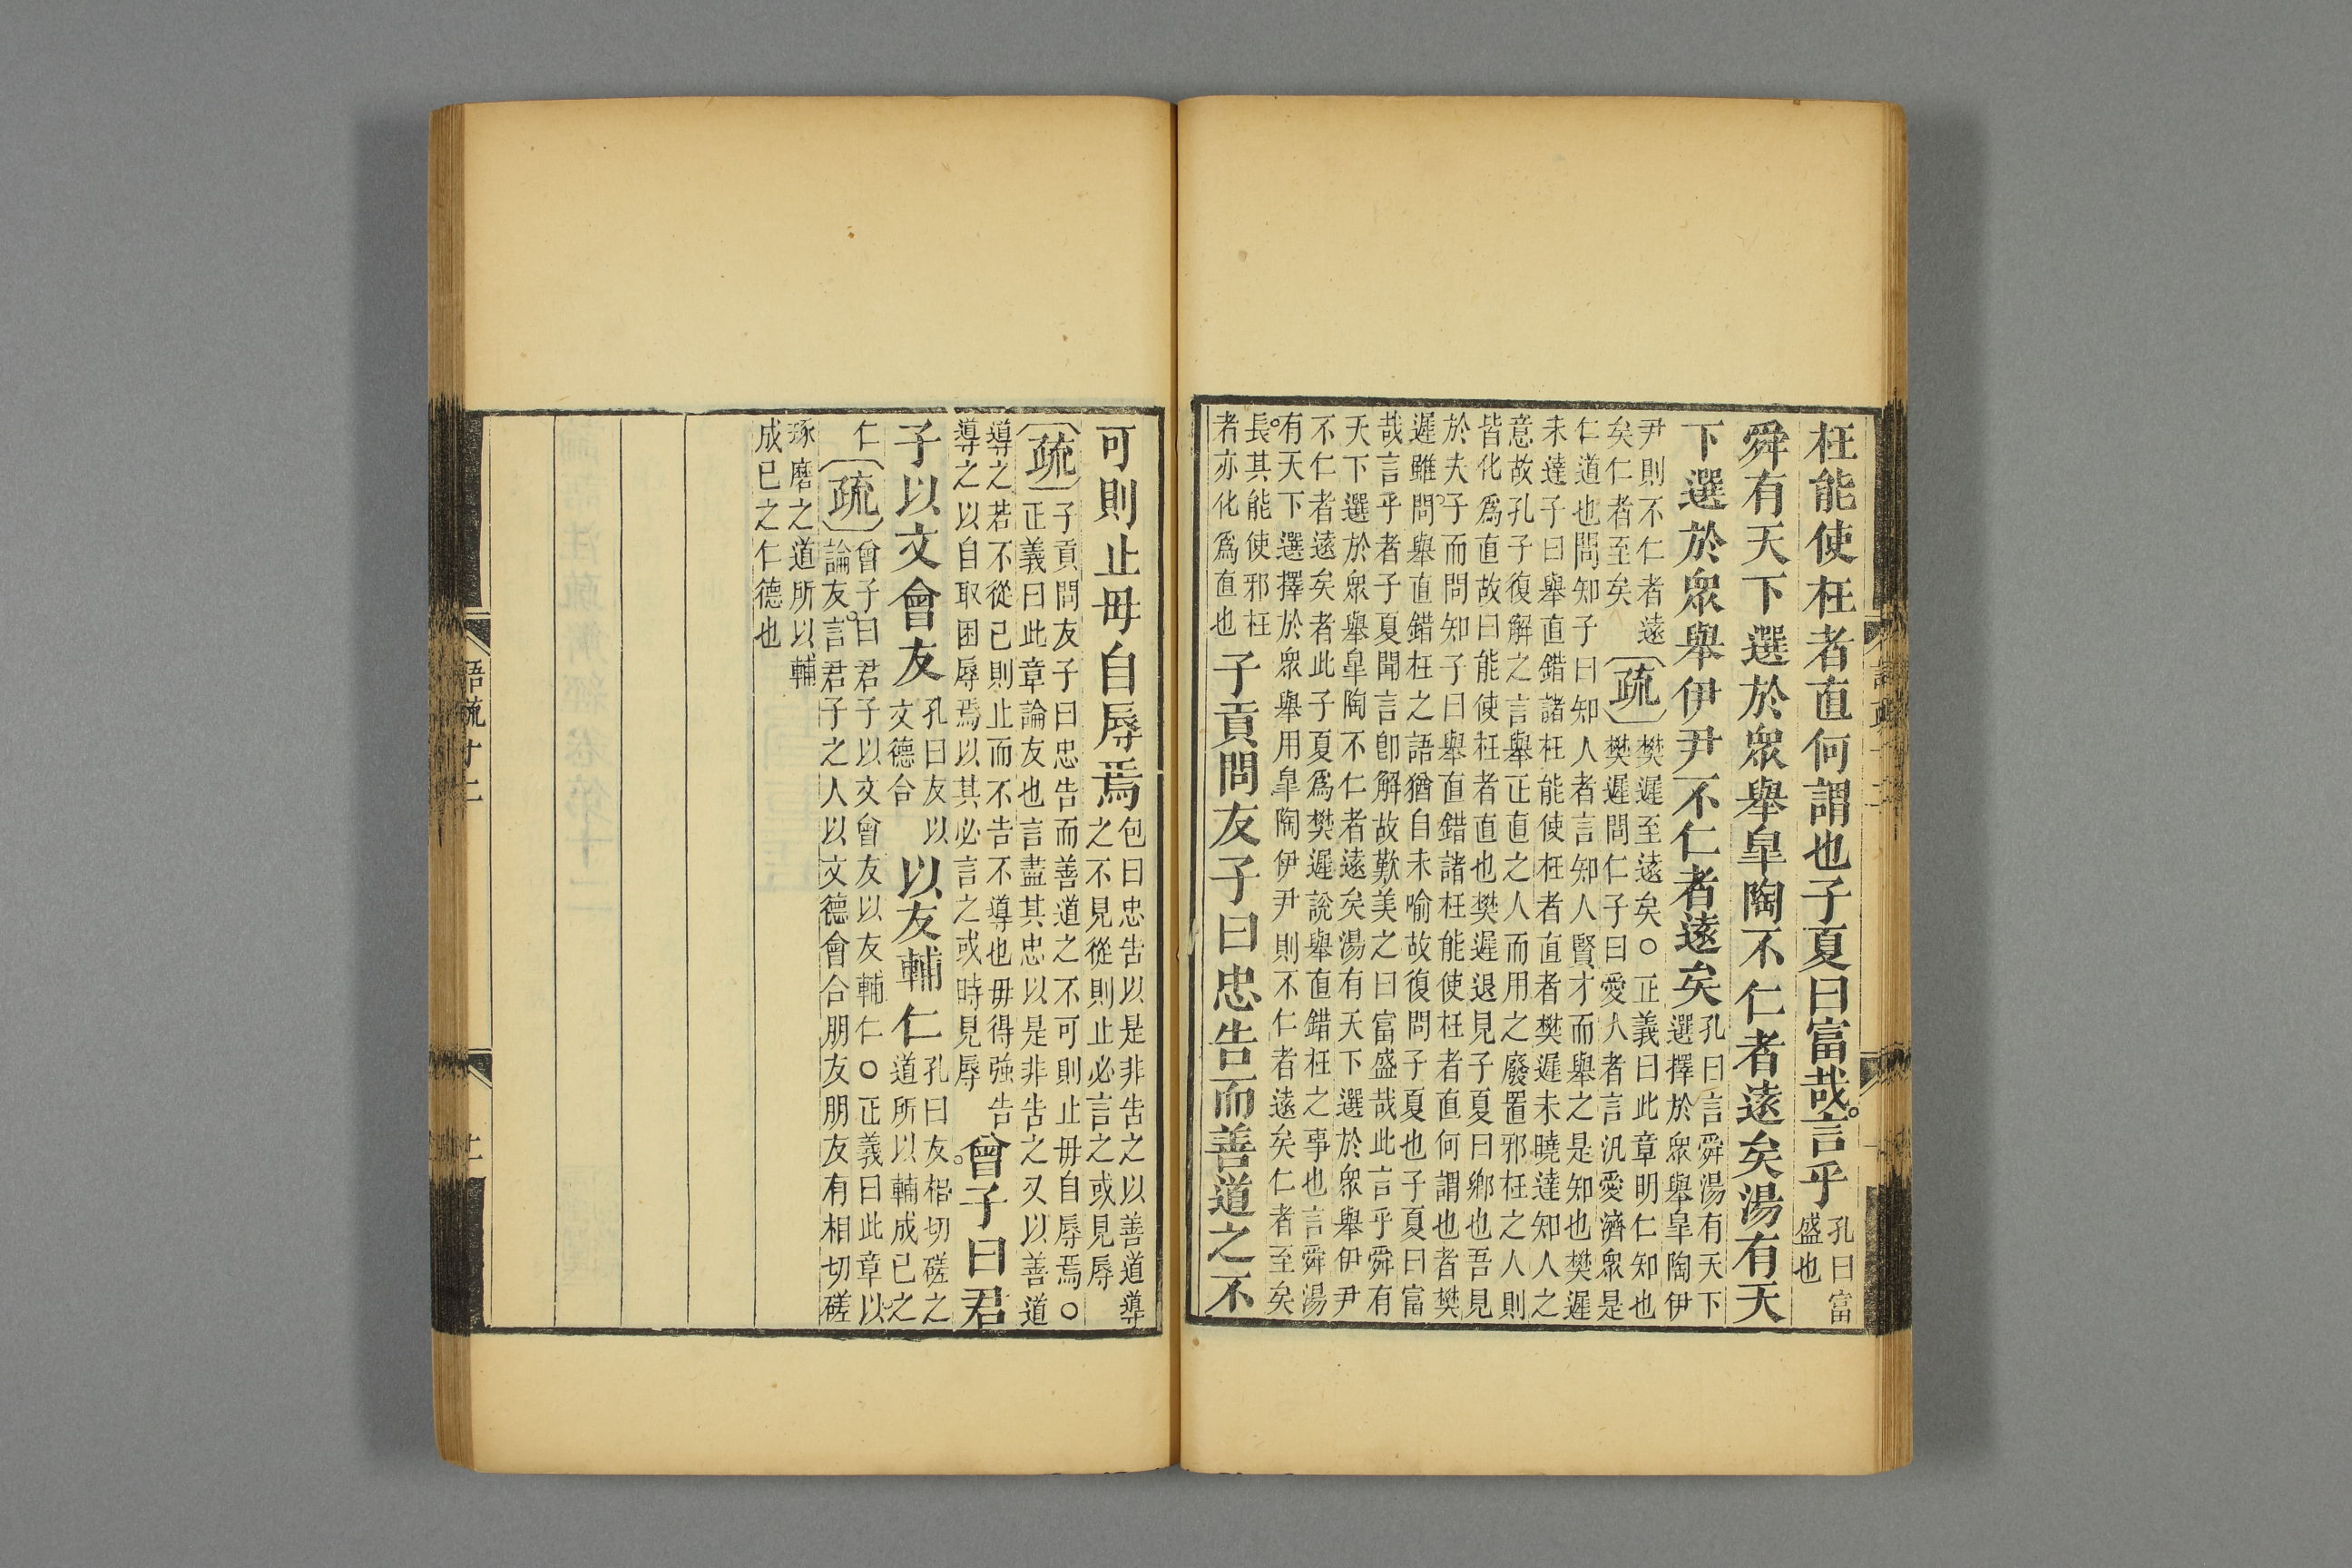 枉能使枉者直何謂也子夏曰富哉言乎孔曰富
盛也
舜有天下選於眾舉皐陶不仁者遠矣湯有天
下選於眾舉伊尹不仁者遠矣孔曰言舜湯有天下
選擇於眾舉皐陶伊
尹則不仁者遠
矣仁者至矣
疏樊遲至遠矣○正義曰此章明仁知也
樊遲問仁子曰愛人者言汎愛濟眾是
仁道也問知子曰知人者言知人賢才而舉之是知也樊遲
未達子曰舉直錯諸枉能使枉者直者樊遲未曉達知人之
意故孔子復解之言舉正直之人而用之廢置邪枉之人則
皆化爲直故曰能使枉者直也樊遲退見子夏曰鄉也吾見
於夫子而問知子曰舉直錯諸枉能使枉者直何謂也者樊
遲雖問舉直錯枉之語猶自未喻故復問子夏也子夏曰富
哉言乎者子夏聞言卽解故歎美之曰富盛哉此言乎舜有
天下選於眾舉皐陶不仁者遠矣湯有天下選於眾舉伊尹
不仁者遠矣者此子夏爲樊遲說舉直錯枉之事也言舜湯
有天下選擇於眾舉用皐陶伊尹則不仁者遠矣仁者至矣
長其能使邪枉
者亦化爲直也
子貢問友子曰忠告而善道之不
可則止毋自辱焉包曰忠告以是非告之以善道導
之不見從則止必言之或見辱
疏子貢問友子曰忠告而善道之不可則止毋自辱焉○
正義曰此章論友也言盡其忠以是非告之又以善道
導之若不從己則止而不告不導也毋得強告
導之以自取困辱焉以其必言之或時見辱
曾子曰君
子以文會友孔曰友以
文德合
以友輔仁孔曰友相切磋之
道所以輔成己之
仁
疏曾子曰君子以文會友以友輔仁○正義曰此章以
論友言君子之人以文德會合朋友朋友有相切磋
琢磨之道所以輔
成己之仁德也
語疏十二